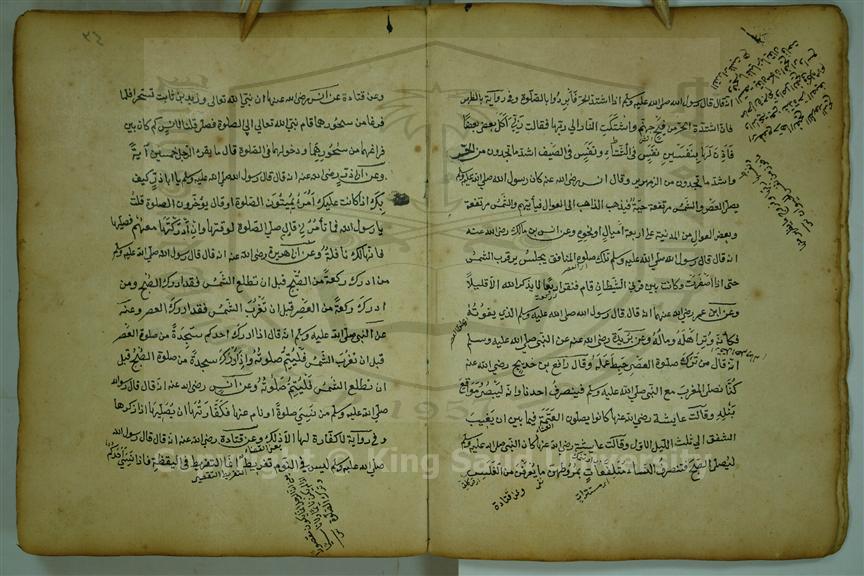 انه قال قال رسول الله صلى الله عليه وسلم اذا اشتد الحر فأبردوا بالصلوة وفى رواية بالظهر
فان شدة الحر من فيح جهنم واشتكت النار الى ربها فقالت رب اكل بعضى بعضا
فأذن لها بنفسين نفس فى الشتاء ونفس فى الصيف اشد ما تجدون من الحر
واشد ما تجدون من الزمهرير وقال انس رضى الله عنه كان رسول الله صلى الله عليه وسلم
يصلى العصر والشمس مرتفعة حية فيذهب الذاهب الى العوالى فيأتيهم والشمس مرتفعة
وبعض العوالى من المدينة على اربعة اميال او نحوه وعن انس بن مالك رضى الله عنه
انه قال قال رسول الله صلى الله عليه وسلم تلك صلوة المنافق يجلس يرقب الشمس
حتى اذا اصفرت وكانت بين قرنى الشيطان قام فنقر اربعا لا يذكر الله الا قليلا
وعن ابن عمر رضى الله عنهما انه قال قال رسول الله صلى الله عليه وسلم الذى يفوته
فكأنما وتر اهله وماله وعن بريدة رضى الله عنه عن النبى صلى الله عليه وسلم
انه قال من ترك صلوة العصر حبط عمله وقال رافع بن خديج رضى الله عنه
كنا نصلى المغرب مع النبى صلى الله عليه وسلم فينصرف احدنا وانه ليبصر مواقع
نبله وقالت عايشة رضى الله عنها كانوا يصلون العتمة فيما بين ان يغيب
الشفق الى ثلث الليل الاول وقالت عايشة رضى الله عنها كان النبى صلى الله عليه وسلم
ليصلى الصبح فتنصرف النساء متلفعات بمروطهن ما يعرفن من الغلس
وعن قتادة
٣٤
وعن قتادة عن انس رضى الله عنهما ان نبى الله تعالى وزيد بن ثابت تسحرا فلما
فرغا من سحورهما قام نبى الله تعالى الى الصلوة فصلى قلنا لانس كم كان بين
فراغهما من سحورهما ودخولهما فى الصلوة قال ما يقرء الرجل خمسين آية
وعن ابى ذر رضى الله عنه انه قال قال رسول الله صلى الله عليه وسلم يا ابا ذر كيف
بك اذا كانت عليك امراء يميتون الصلوة او قال يؤخرون الصلوة قلت
يا رسول الله فما تأمرنى قال صل الصلوة لوقتها وان ادركتها معهم فصلها
فانها لك نافلة وعن ابى هريرة رضى الله عنه انه قال قال رسول الله صلى الله عليه وسلم
من ادرك ركعة من الصبح قبل ان تطلع الشمس فقد ادرك الصبح ومن
ادرك ركعة من العصر قبل ان تغرب الشمس فقد ادرك العصر وعنه
عن النبى صلى الله عليه وسلم انه قال اذا ادرك احدكم سجدة من صلوة العصر
قبل ان تغرب الشمس فليتم صلوته واذا ادرك سجدة من صلوة الصبح قبل
ان تطلع الشمس فليتم صلوته وعن انس رضى الله عنه انه قال قال رسول الله
صلى الله عليه وسلم من نسى صلوة او نام عنها فكفارتها ان يصليها اذا ذكرها
وفى رواية لا كفارة لها الا ذلك وعن قتادة رضى الله عنه انه قال قال رسول الله
صلى الله عليه وسلم ليس فى النوم تفريط انما التفريط فى اليقظة فاذا نسى احدكم
Copyright © King Saud University
195